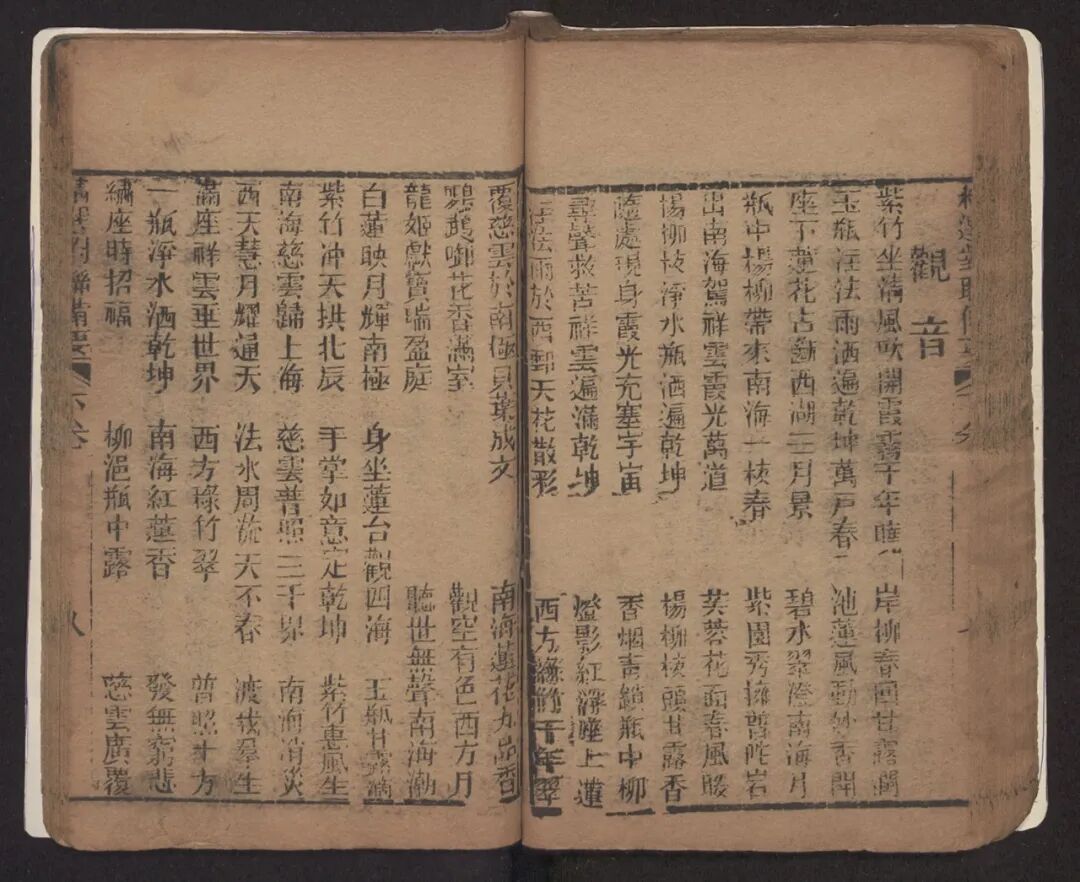 觀音
紫竹坐清風吹開霞靄千年 岸柳春回甘露潤
玉瓶注法雨洒遍乾坤萬戶春 池蓮風動妙香開
座下蓮花古 西湖三月景 碧水翠澄南海月
瓶中楊柳帶來南海一枝春 紫園秀擁普陀岩
出南海駕祥雲霞光萬道 芙蓉花面春風暖
楊柳枝淨水瓶洒遍乾坤 楊柳枝頭甘露香
隨處現身霞光充塞宇宙 香烟靑鎖瓶中柳
尋聲救苦祥雲遍滿乾坤 燈影紅浮座上蓮
法雨於西郵天花散彩 西方綠竹千年翠
覆慈雲於南極貝葉成文 南海蓮花九品香
鸚鵡啣花香滿室 觀空有色西方月
龍姬獻寶瑞盈庭 聽世無聲南海潮
白蓮映月輝南極 身坐蓮台觀四海 玉瓶甘露滴
紫竹冲天拱北辰 手掌如意定乾坤 紫竹惠風生
南海慈雲歸上海 慈雲普照三千界 南海消災
西天慧月耀通天 法水周流天不春 渡我羣生
滿座祥雲垂世界 西方琭竹翠 普照十方
一瓶淨水洒乾坤 南海紅蓮香 發無窮悲
繡座時招福 柳浥瓶中露 慈雲廣覆
精選對聯備要 下卷 八